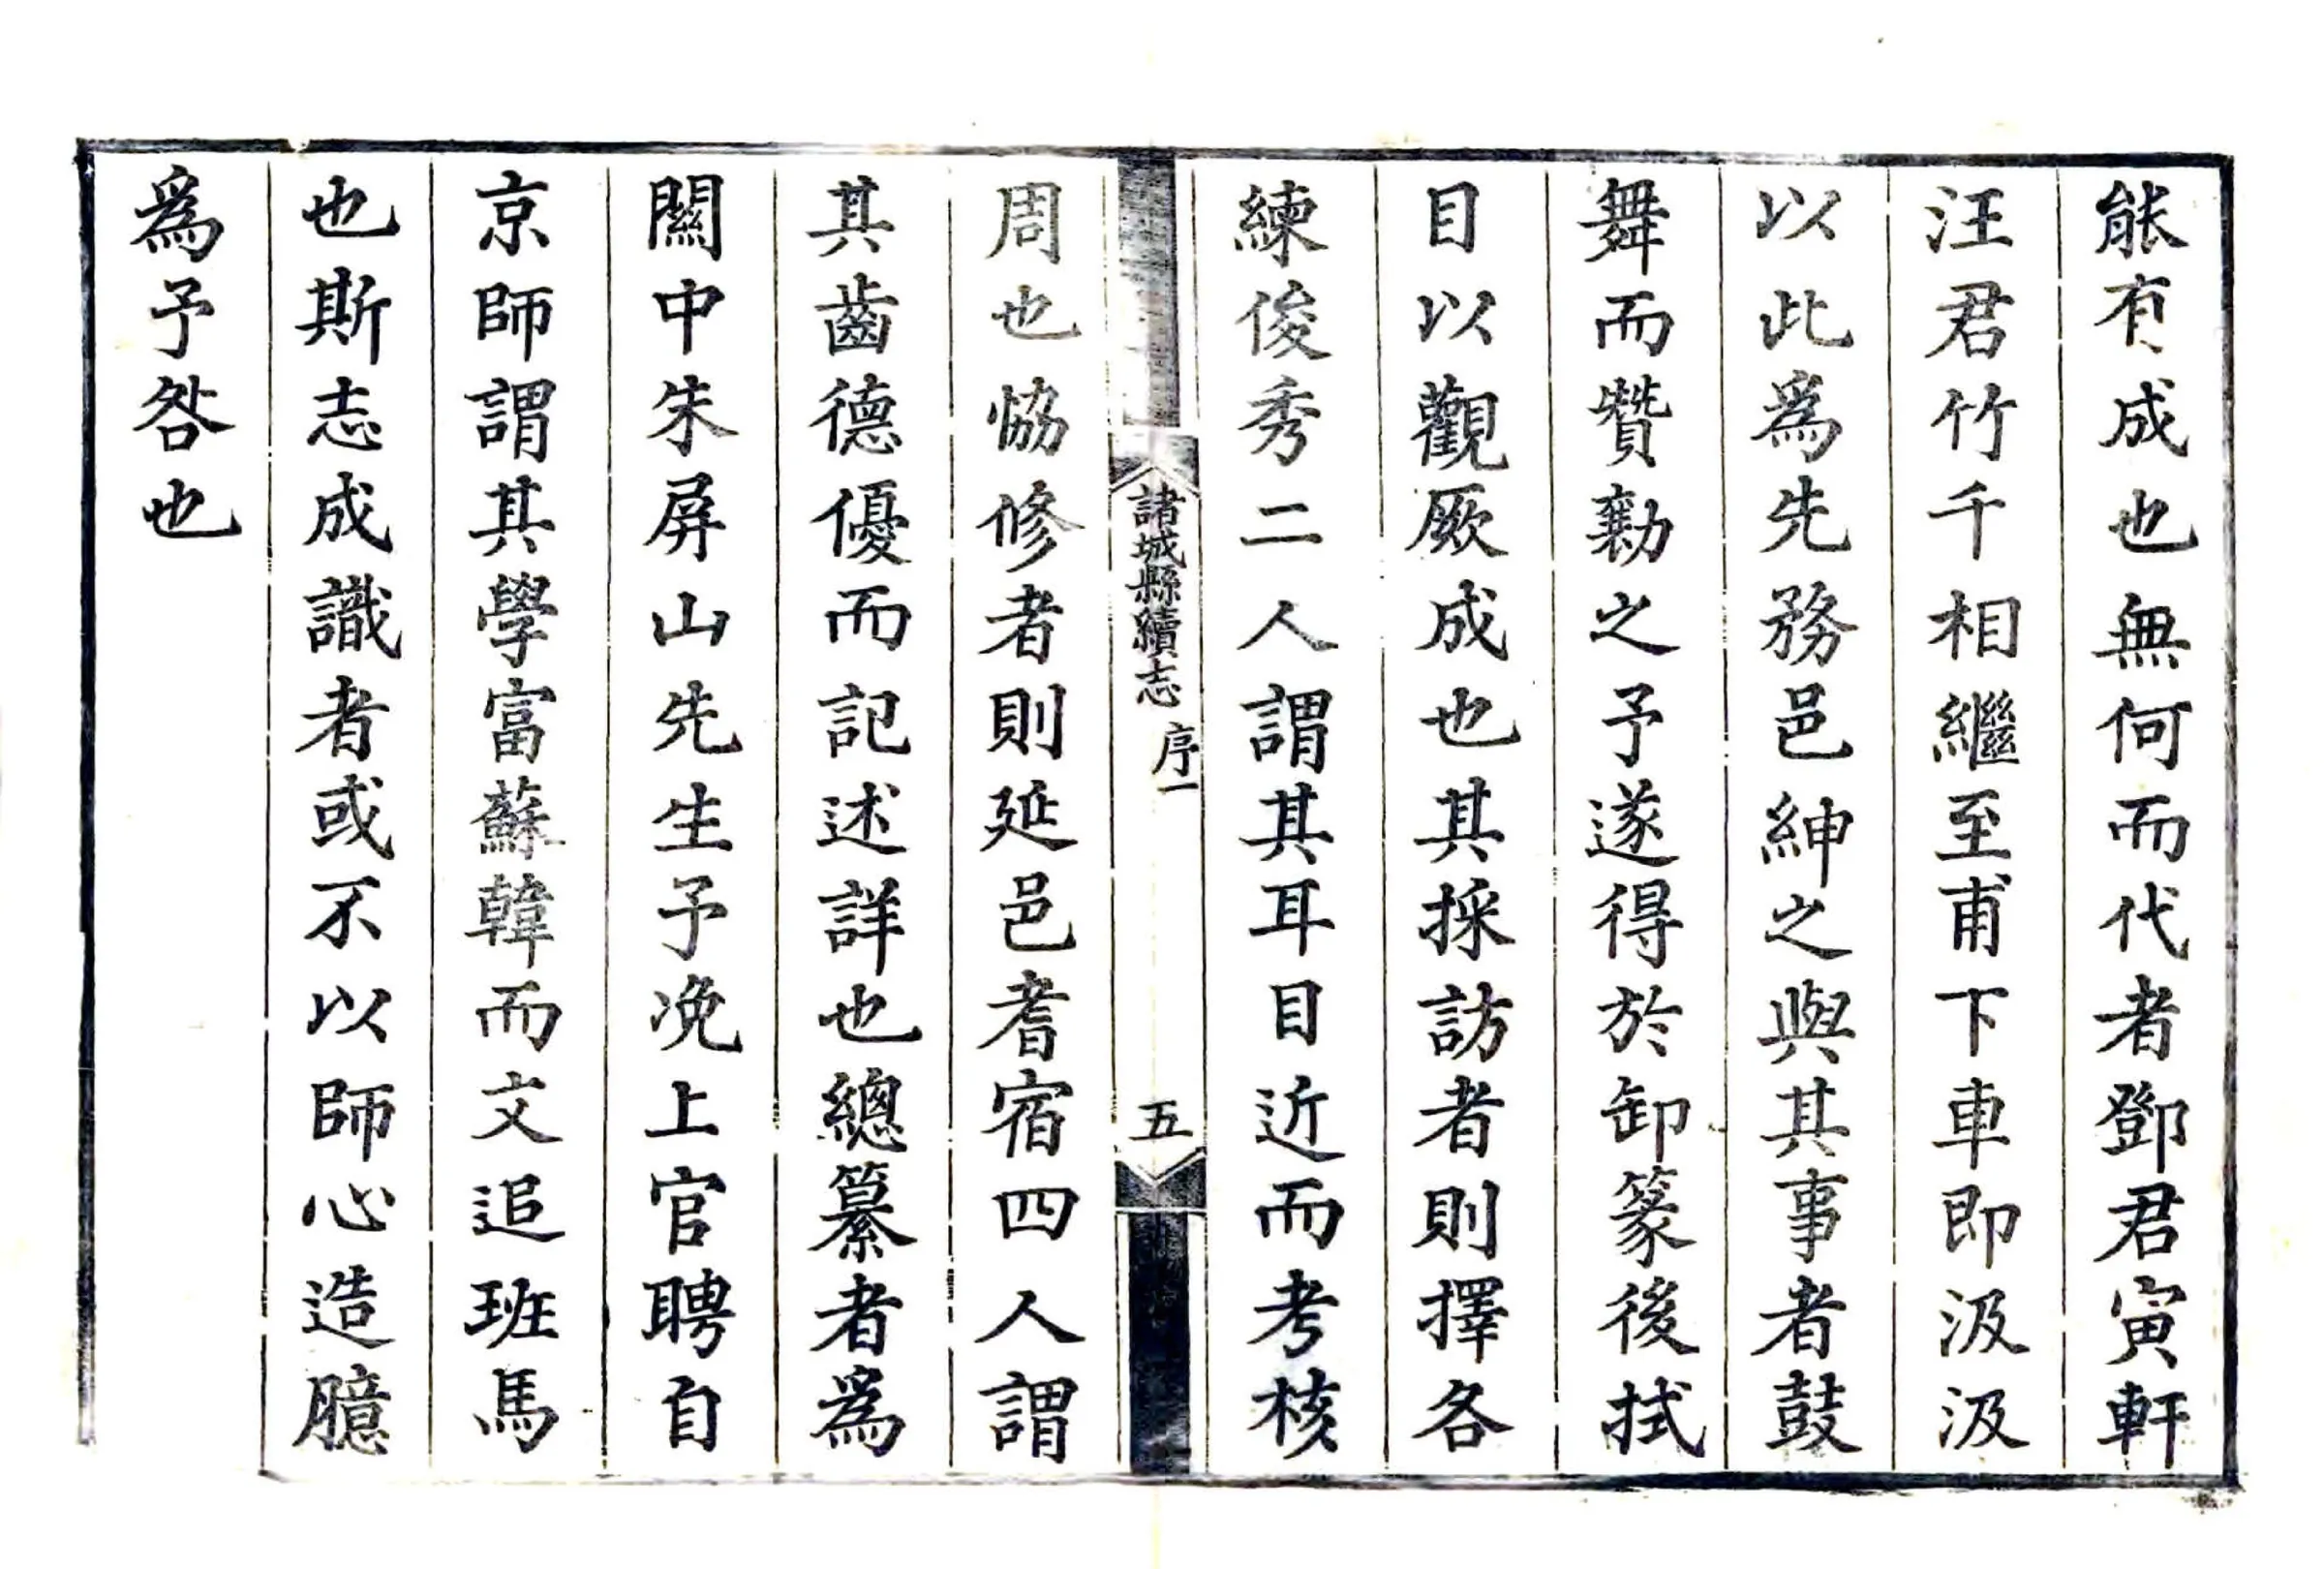 能有成也無何而代者鄧君寅軒
汪君竹千相繼至甫下車即汲汲
以此為先務邑紳之與其事者鼓
舞而贊勷之予遂得於卸篆後拭
目以觀厥成也其採訪者則擇各
練俊秀二人謂其耳目近而考核
諸城縣續志 序一 五
周也恊修者則延邑耆宿四人謂
其齒德優而記述詳也總纂者為
關中朱屏山先生予浼上官聘自
京師謂其學富蘇韓而文追班馬
也斯志成識者或不以師心造臆
為予咎也